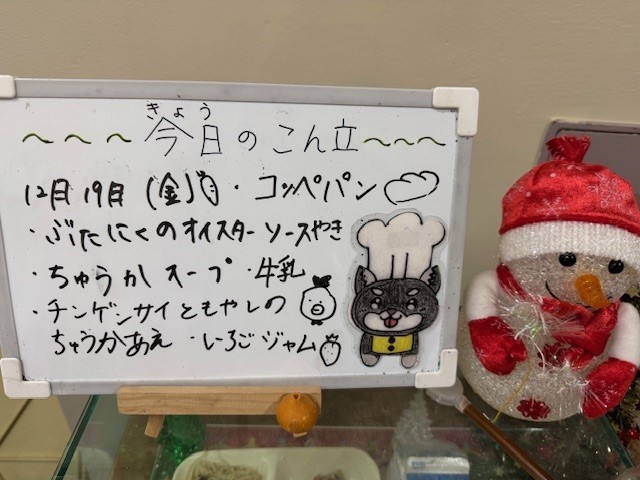 きょう
～～～今日のこん立～～～
12月19日(金)・コッペパン
・ぶたにくのオイスターソースやき
・ちゅうかスープ・牛乳
・チンゲンサイともやしの
ちゅうかあえ・いちごジャム